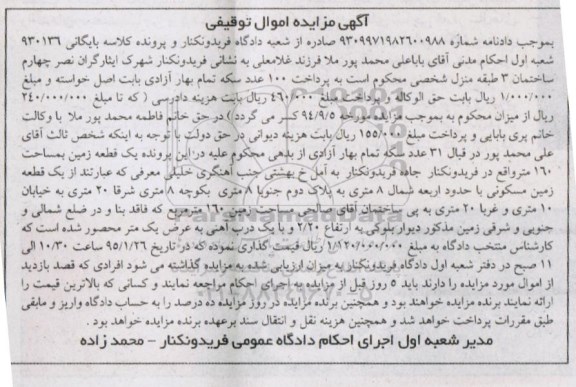 آگهی مزایده اموال توقیفی
بموجب دادنامه شماره ۹۳۰۹۹۷۱۹۸۲۶۰۰۹۸۸ صادره از شعبه دادگاه فریدونکنار و پرونده کلاسه بایگانی ۹۳۰۱۳۶
شعبه اول احکام مدنی آقای باباعلی محمد پور ملا فرزند غلامعلی به نشانی فریدونکنار شهرک ایثارگران نصر چهارم
ساختمان ۳ طبقه منزل شخصی محکوم است به پرداخت ۱۰۰ عدد سکه تمام بهار آزادی بابت اصل خواسته و مبلغ
۱/۰۰۰/۰۰۰ ریال بابت حق الوکاله و پرداخت مبلغ ۴۹۰/۰۰۰ ریال بابت هزینه دادرسی ( که تا مبلغ ۲۴۰/۰۰۰/۰۰۰
ریال از میزان محکوم به بموجب مزایده مورخه ۹۴/۹/۵ کسر می گردد ) در حق خانم فاطمه محمد پور ملا با وکالت
خانم پری بابایی و پرداخت مبلغ ۱۵۵/۰۰۰ ریال بابت هزینه دیوانی در حق دولت با توجه به اینکه شخص ثالث آقای
علی محمد پور در قبال ۳۱ عدد سکه تمام بهار آزادی از بدهی محکوم علیه در این پرونده یک قطعه زمین بمساحت
۱۶۰ مترواقع در فریدونکنار جاده فریدونکنار به آمل خ بهشتی جنب آهنگری خلیلی معرفی که عبارتند از یک قطعه
زمین مسکونی با حدود اربعه شمال ۸ متری به پلاک دوم جنوبا ۸ متری بکوچه ۸ متری شرقا ۲۰ متری به خیابان
۱۰ متری و غربا ۲۰ متری به پی ساختمان آقای صالحی مساحت زمین ۱۶۰ مترمربع که فاقد بنا و در ضلع شمالی و
جنوبی و شرقی زمین مذکور دیوار بلوکی به ارتفاع ۲/۲۰ و با یک درب آهنی به عرض یک متر محصور شده است که
کارشناس منتخب دادگاه به مبلغ ۱/۱۲۰/۰۰۰/۰۰۰ ریال قیمت گذاری نموده که در تاریخ ۹۵/۱/۲۶ ساعت ۱۰/۳۰ الی
۱۱ صبح در دفتر شعبه اول دادگاه فریدونکنار به میزان ارزیابی شده به مزایده گذاشته می شود افرادی که قصد بازدید
از اموال مورد مزایده را دارند باید ۵ روز قبل از مزایده به اجرای احکام مراجعه نمایند و کسانی که بالاترین قیمت را
ارائه نمایند برنده مزایده خواهند بود و همچنین برنده مزایده در روز مزایده ده درصد را به حساب دادگاه واریز و مابقی
طبق مقررات پرداخت خواهد شد و همچنین هزینه نقل و انتقال سند برعهده برنده مزایده خواهد بود .
مدیر شعبه اول اجرای احکام دادگاه عمومی فریدونکنار - محمد زاده